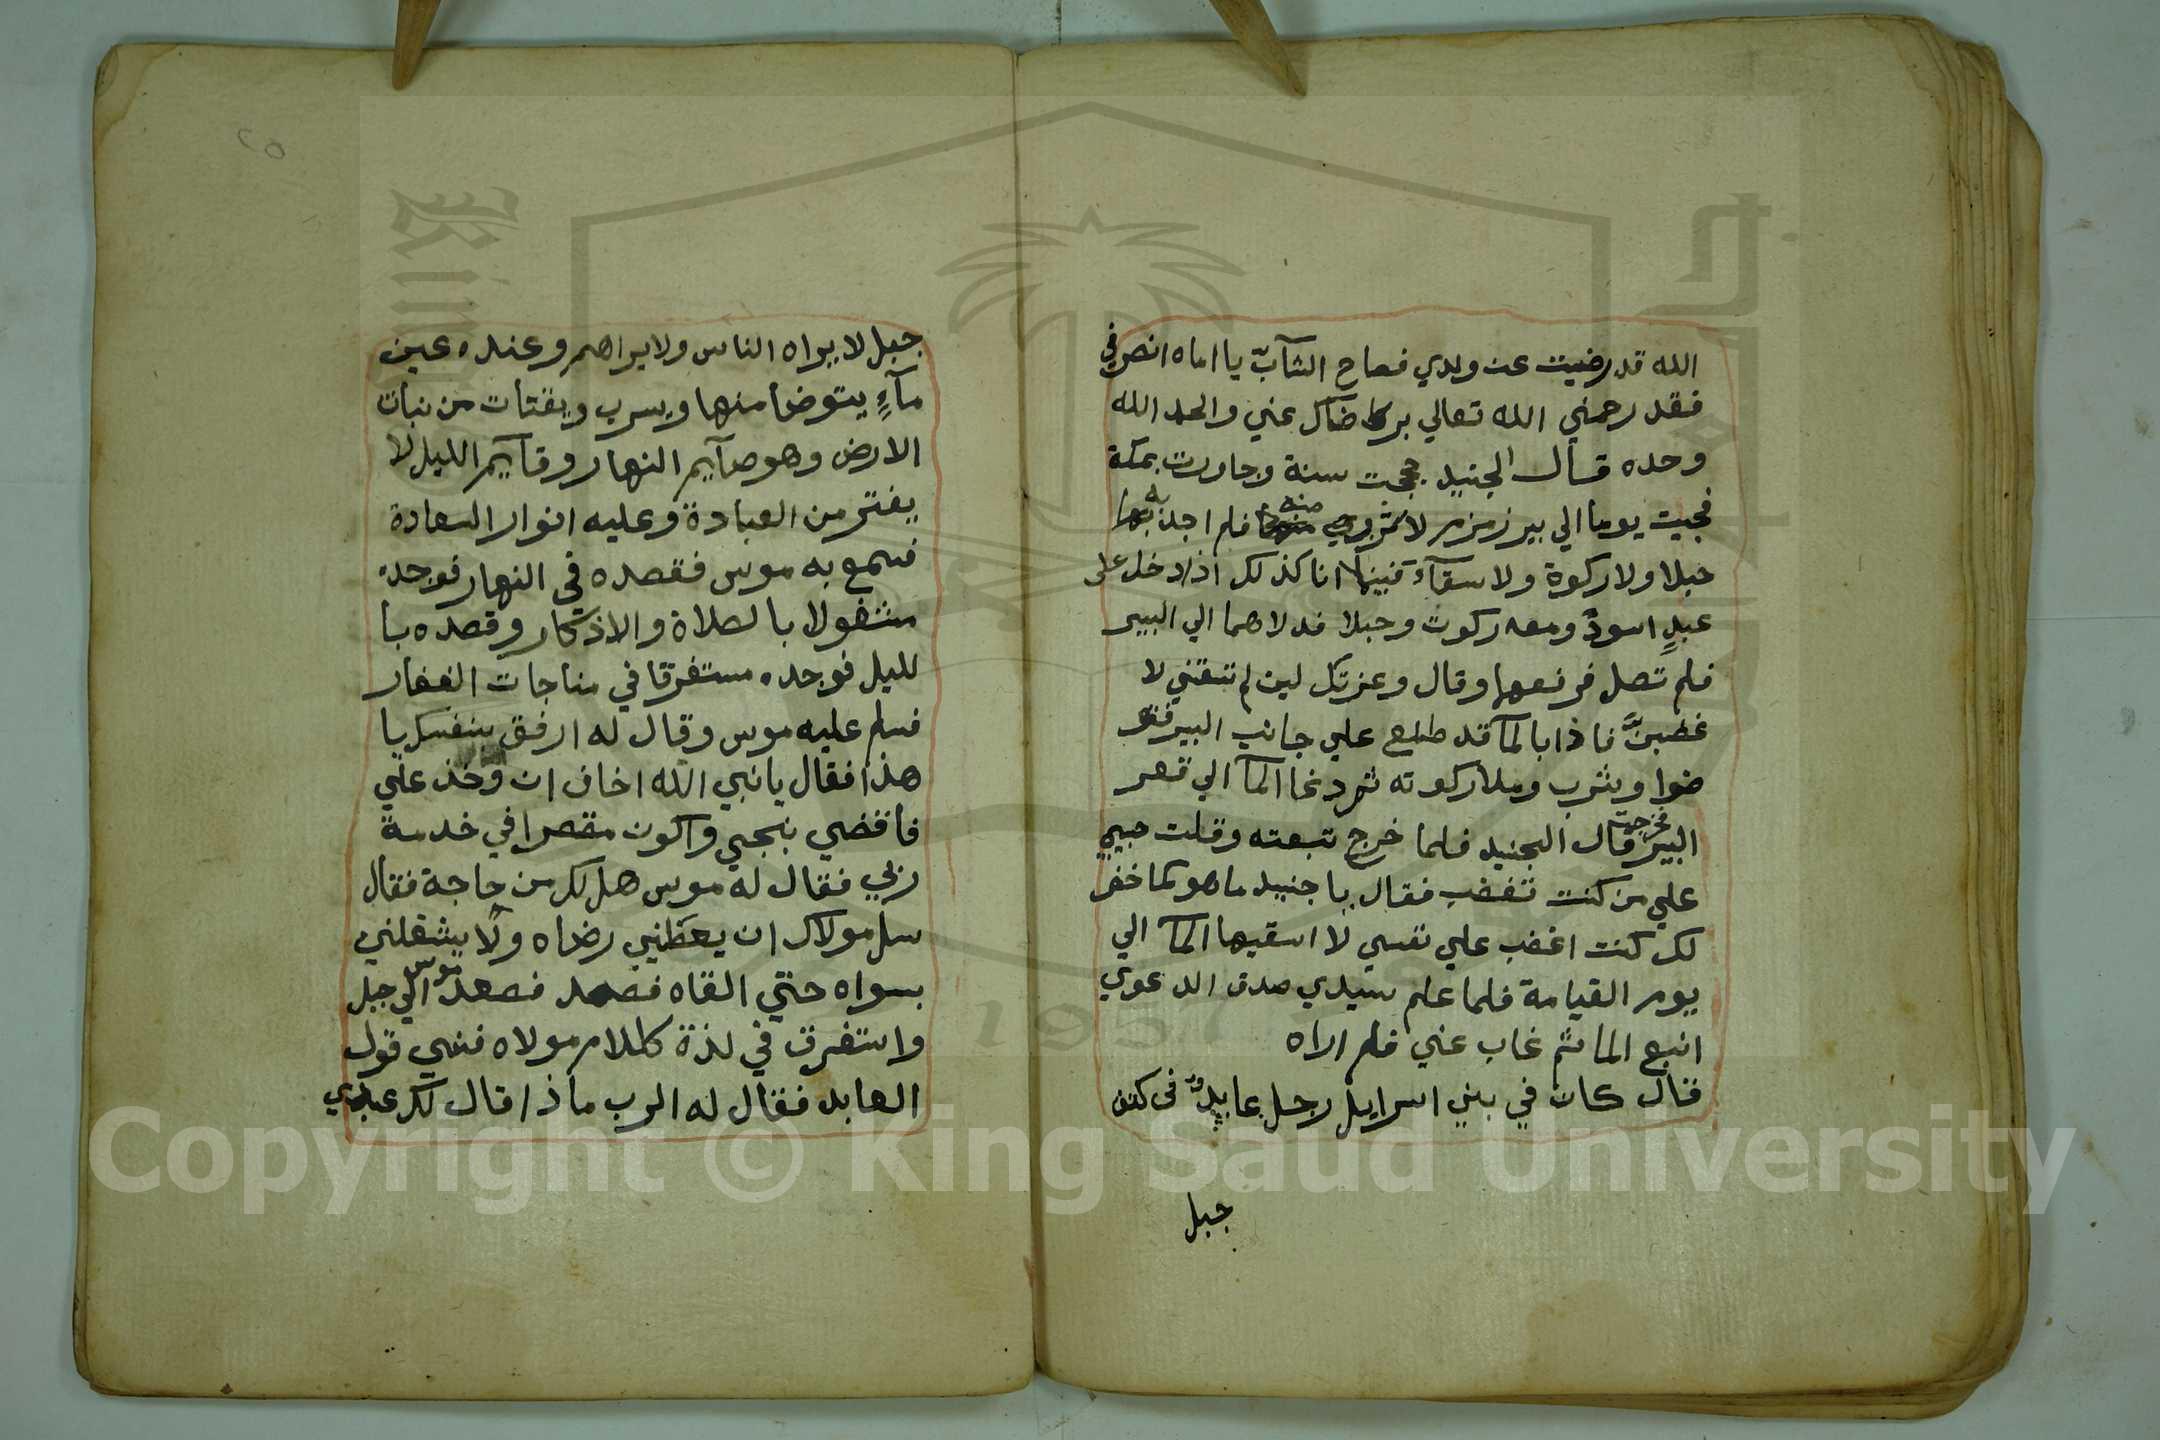 الله قد رضيت عن ولدي فصاح الشآبّ يا اماه انصرفي
فقد رحمني الله تعالي برضآك عني والحمد الله
وحده قال الجنيد حججت سنة وجاورت بمكة
فجيت يوما الي بير زمزم لاشرب منه فلم اجد به
حبلا ولا ركوة ولا سقآء فبينما انا كذلك اذ دخل على
عبدٍ اسودٌ ومعه ركوت وحبلا فدلاهما الي البير
فلم تصل فرفعها وقال وعزتك لين لم تسقني لا
غضبنَّ فاذا بالمآ قد طلع علي جانب البير فتو
ضوا وشرب وملا ركوته ثم رد غا المآ الي قعر
البير فخرجت قال الجنيد فلما خرج تبعته وقلت حبيبي
علي من كنت تغضب فقال يا جنييد ما هو كما خفر
لك كنت اغضب علي نفسي لا اسقيها المآ الي
يوم القيامة فلما علم سيدي صدق الدعوي
انبع الما ثم غاب عني فلم اراه
قال كان في بني اسرايل رجل عابدٌ في كتف
جبل
٢٥
جبل لا يراه الناس ولا يراهم وعنده عين
مآءٍ يتوضا منها ويسرب ويقتات من نبات
الارض وهو صآيم النهار وقآيم الليل لا
يفتر من العبادة وعليه انوار السعادة
فسمع به موسى فقصده في النهار فوجده
مشغولا بالصلاة والاذكار وقصده با
لليل فوجده مستغرقا في مناجات الغفار
فسلم عليه موسى وقال له ارفق بنفسك يا
هذا فقال يا نبي الله اخاف ان وخذ علي
فاقضي نجي واكون مقصرا في خدمة
ربي فقال له موسى هل لك من حاجة فقال
سل مولاك ان يعطني رضاه ولا يشغلني
بسواه حتي القاه فصعد موسى الي جبل
واستغرق في لذة كلام مولاه فنسي قول
العابد فقال له الرب ماذا قال لك عبدي
Copyright © King Saud University
1957